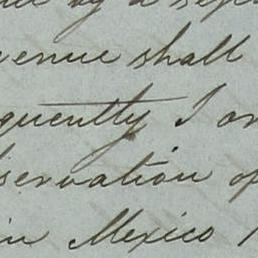 by a sep
venue shall
quently I am
servation of
in Mexico